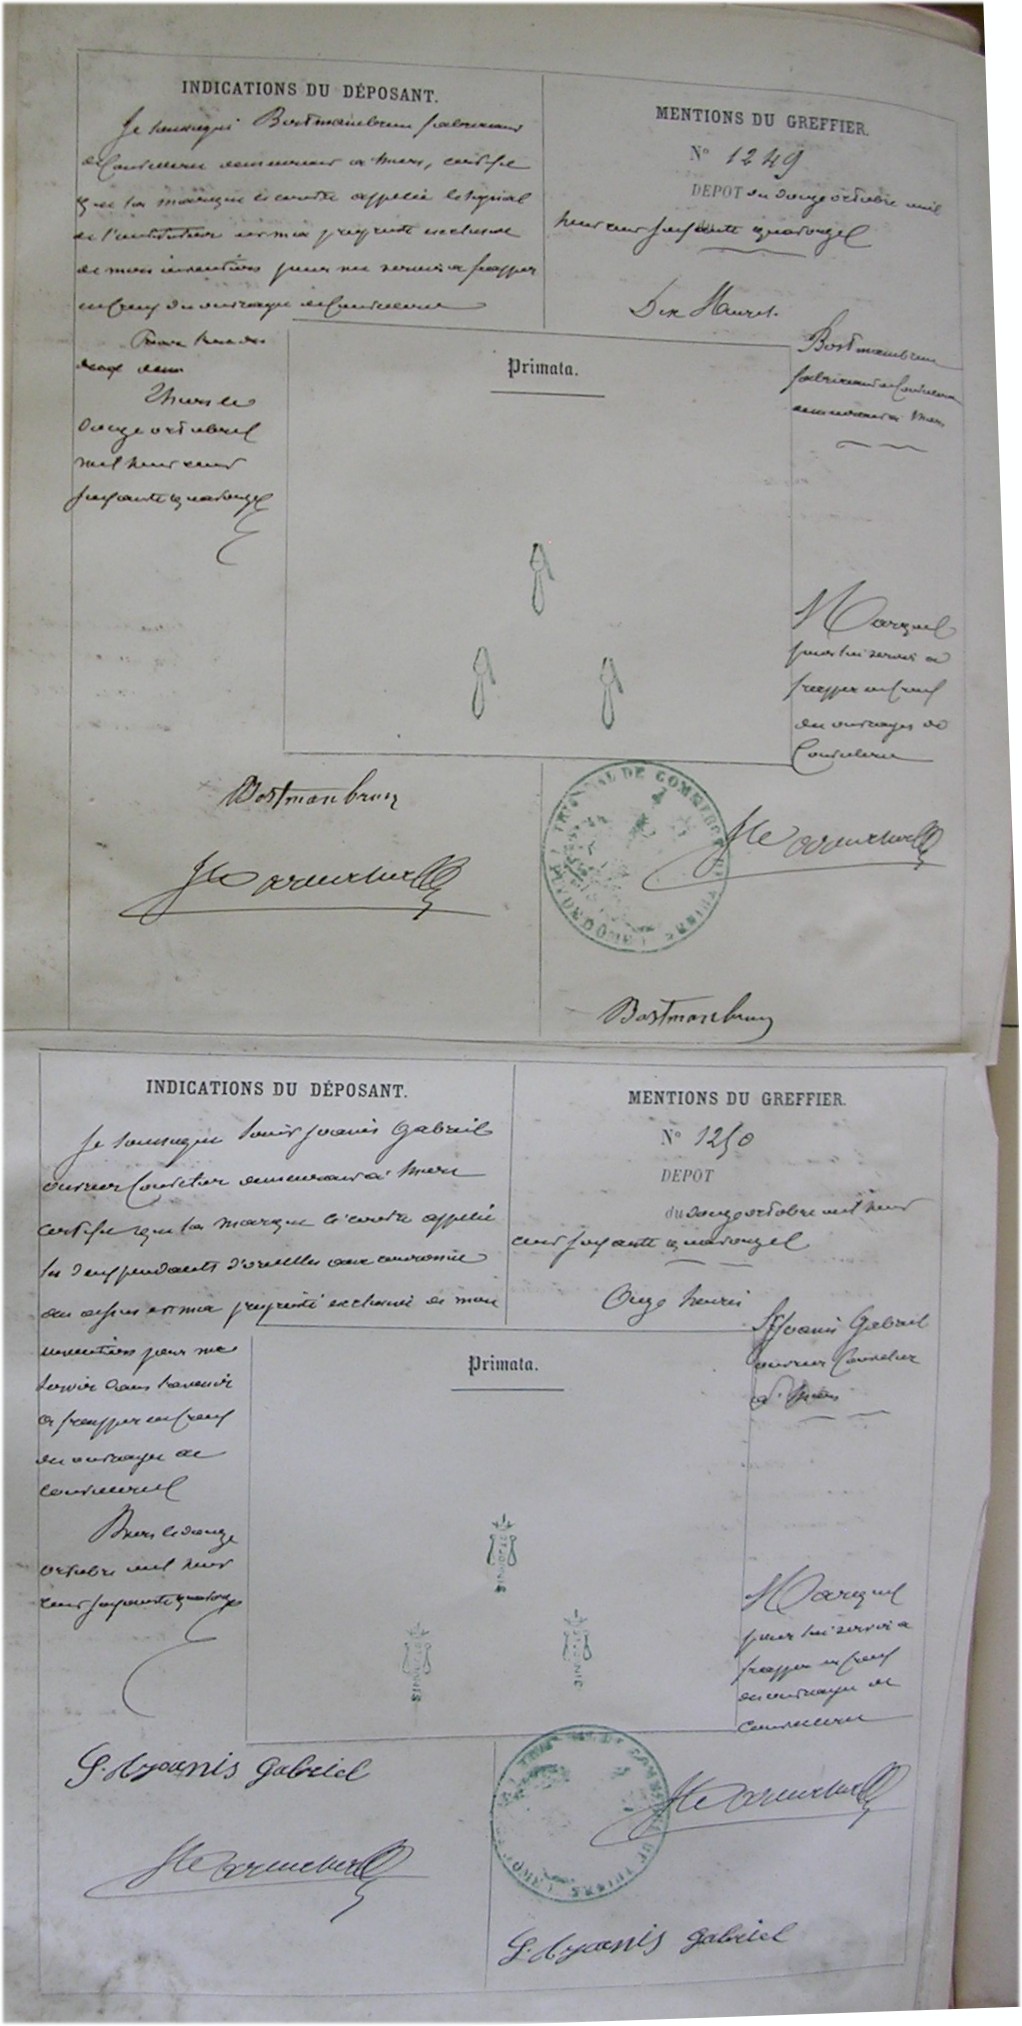 INDICATIONS DU DÉPOSANT.
Je soussigné Bostmambrun fabricant
de Coutellerie demeurant à Thiers, certifie
que la marque ci contre appelée
de est ma propriété exclusive
de mon invention pour me servir à frapper
en Creux des ouvrages de Coutellerie
Thiers le
Douze octobre
mil neuf cent
soixante quatorze
MENTIONS DU GREFFIER.
N° 1249
DEPOT du Douze octobre mil
neuf cent soixante quatorze
Dix Heures.
Primata.
Bostmambrun
fabricant de Coutellerie
demeurant à Thiers
Marque
pour lui servir à
frapper en Creux
des ouvrages de
Coutellerie
Bostmambrun
TRIBUNAL DE COMMERCE DE THIERS
Bostmambrun
INDICATIONS DU DÉPOSANT.
Je soussigné Joanis Gabriel
ouvrier Coutelier demeurant à Thiers
certifie que la marque ci contre appelée
les deux pendants d'oreilles une couronne
au dessus est ma propriété exclusive de mon
invention pour me
servir dans l'avenir
à frapper en Creux
des ouvrages de
coutellerie
Thiers le douze
octobre mil neuf
cent soixante quatorze
MENTIONS DU GREFFIER.
N° 1250
DEPOT
du Douze octobre mil neuf
cent soixante quatorze
Onze heures
Primata.
Joanis Gabriel
ouvrier Coutelier
à Thiers
Marque
pour lui servir à
frapper en Creux
des ouvrages de
Coutellerie
Gabriel
TRIBUNAL DE COMMERCE DE THIERS
Gabriel